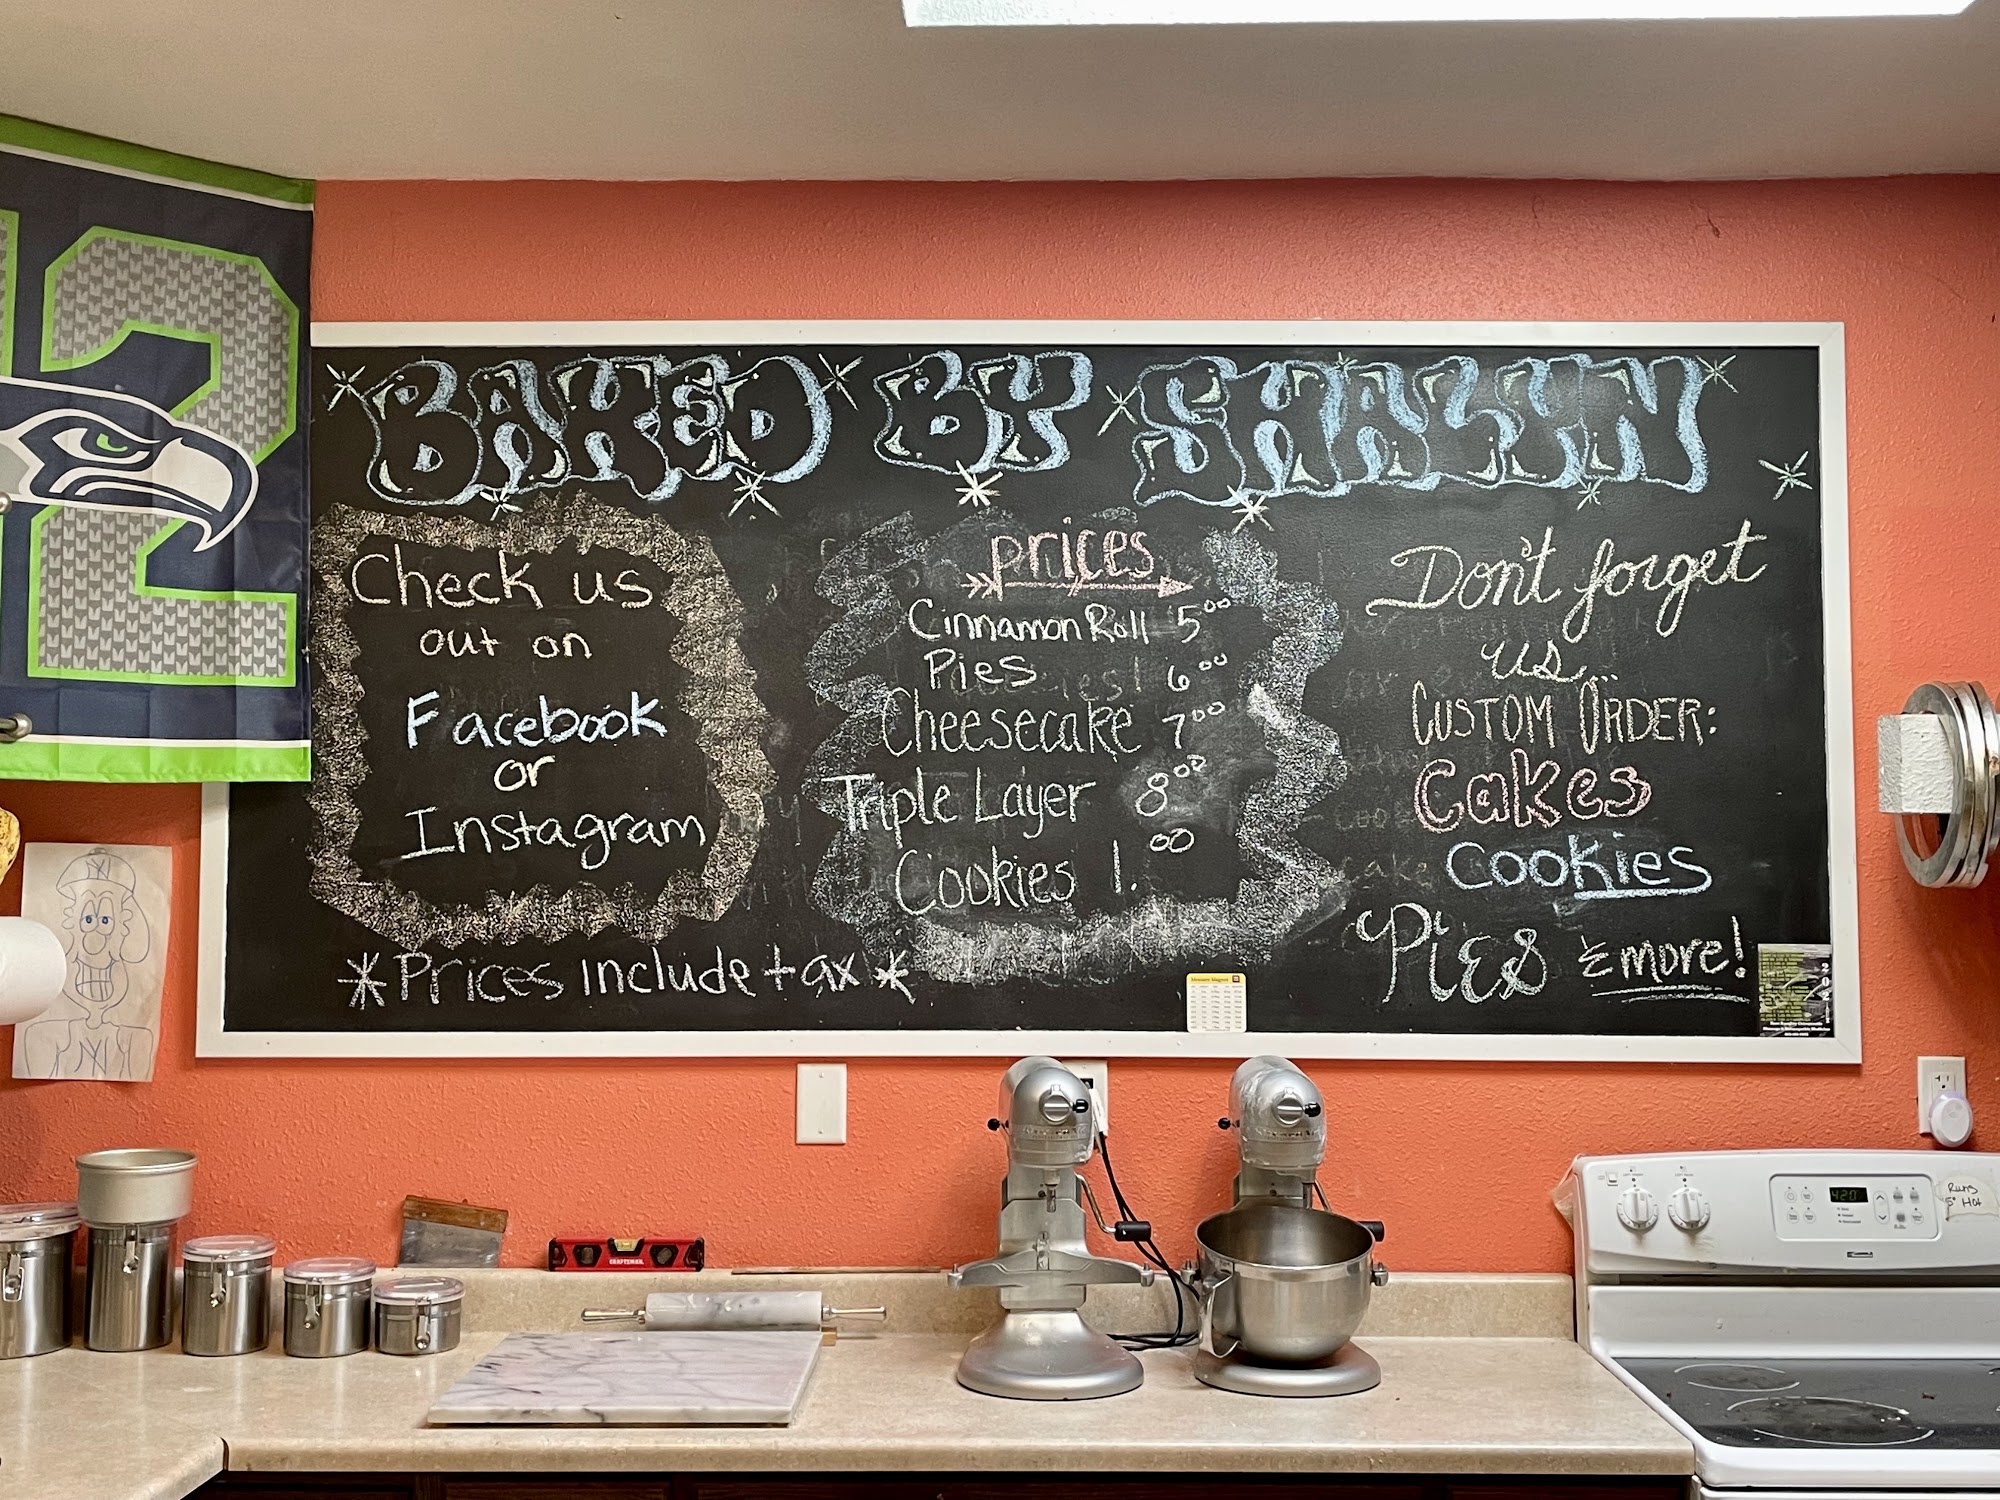 12
BAKED BY SHALYN
Check us
out on
Facebook
or
Instagram
*Prices include tax*
prices
Cinnamon Roll 5⁰⁰
Pies 6⁰⁰
Cheesecake 7⁰⁰
Triple Layer 8⁰⁰
Cookies 1.⁰⁰
Don't forget
us...
CUSTOM ORDER:
Cakes
Cookies
PiES & more!
CRAFTSMAN
420
Runs
5° Hot